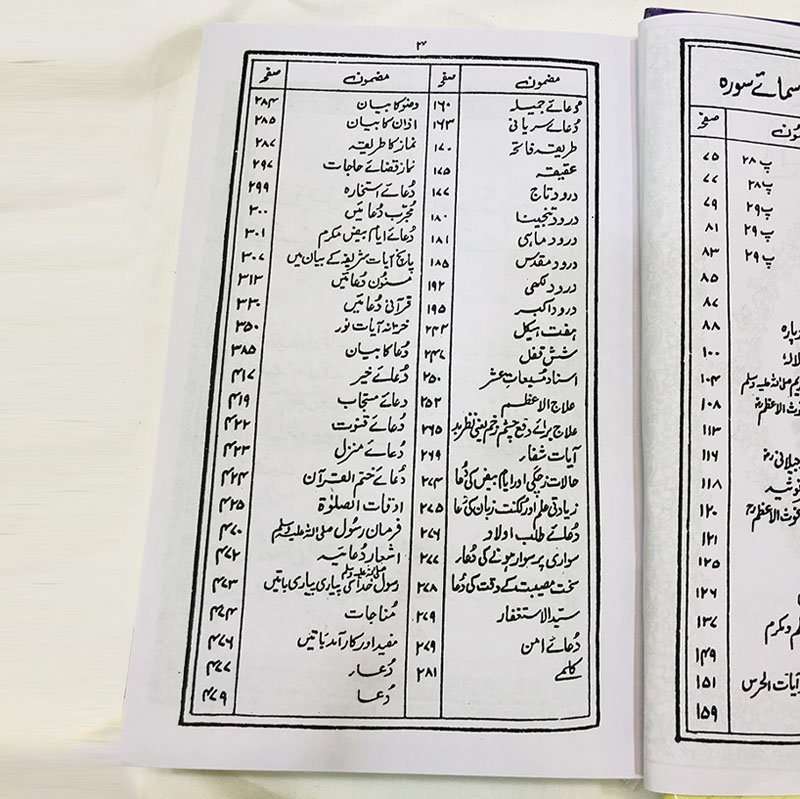 سمائے سورہ
صفحہ
پ ۲۸ ۷۵
پ ۲۸ ۷۷
پ ۲۹ ۷۹
پ ۲۹ ۸۱
پ ۲۹ ۸۳
۸۵
۸۷
۸۸
۱۰۰
صلی اللہ علیہ وسلم ۱۰۴
الاعظم ۱۰۸
۱۱۳
جیلانی ۱۱۶
۱۱۸
غوث الاعظم ۱۲۰
۱۲۱
۱۲۵
۱۲۶
و مکرم ۱۳۷
۱۴۹
آیات الحرس ۱۵۱
۱۵۹
۴
مضمون صفحہ
دعائے جمیلہ ۱۶۰
دُعائے سریانی ۱۶۳
طریقہ فاتحہ ۱۷۰
عقیقہ ۱۷۵
درود تاج ۱۷۷
درود تنجینا ۱۸۰
درود ماہی ۱۸۱
درود مقدس ۱۸۵
درود لکھی ۱۹۲
درود اکبر ۱۹۵
ہفت ہیکل ۲۴۳
شش قفل ۲۴۷
اسناد مسبعات عشر ۲۵۰
علاج الاعظم ۲۵۲
علاج برائے دفع چشم زخم یعنی نظر بد ۲۶۵
آیات شفار ۲۶۹
حالات زچگی اور ایام بیض کی دُعا ۲۷۴
زیادتی علم اور لکنت زبان کی دُعا ۲۷۵
دُعائے طلب اولاد ۲۷۶
سواری پر سوار ہونے کی دُعار ۲۷۷
سخت مصیبت کے وقت کی دُعا ۲۷۸
سیّد الاستغفار ۲۷۹
دُعائے امن ۲۷۹
کلمے ۲۸۱
مضمون صفحہ
وضو کا بیان ۲۸۴
اذان کا بیان ۲۸۵
نماز کا طریقہ ۲۸۷
نماز قضائے حاجات ۲۹۷
دُعائے استخارہ ۲۹۹
مُجرّب دُعائیں ۳۰۰
دُعائے ایام بیض مکرم ۳۰۱
پانچ آیات شریفہ کے بیان میں ۳۰۷
مسنون دُعائیں ۳۱۳
قرآنی دُعائیں ۳۳۰
خزانہ آیات نور ۳۵۰
دُعا کا بیان ۳۸۵
دُعائے خیر ۴۱۷
دعائے مستجاب ۴۱۹
دُعائے قنوت ۴۲۲
دُعائے منزل ۴۲۳
دُعائے ختم القرآن ۴۲۴
اوقات الصلوٰۃ ۴۲۵
فرمان رسول صلی اللہ علیہ وسلم ۴۷۰
اشعار دُعائیہ ۴۷۲
رسول خدا صلی اللہ علیہ وسلم کی پیاری پیاری باتیں ۴۷۳
مُناجات ۴۷۴
مفید اور کار آمد باتیں ۴۷۶
دُعار ۴۷۷
دُعا ۴۷۹